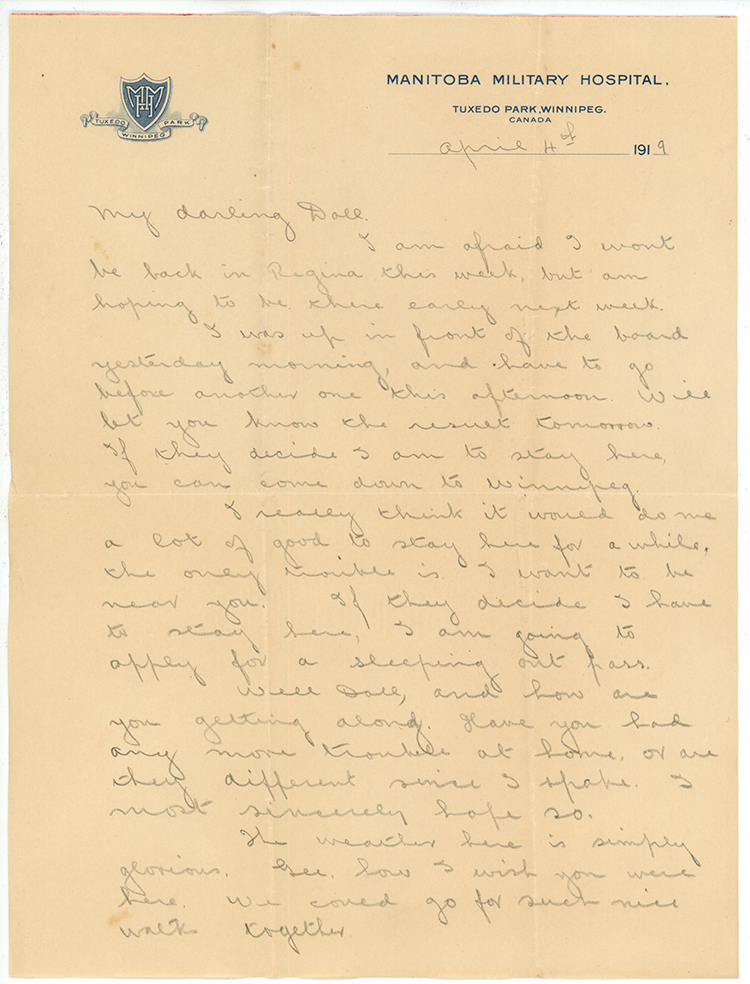 MANITOBA MILITARY HOSPITAL,
TUXEDO PARK, WINNIPEG.
CANADA
MHH
TUXEDO PARK
WINNIPEG
April 4th 1919
My darling Doll.
I am afraid I wont
be back in Regina this week, but am
hoping to be there early next week.
I was up in front of the board
yesterday morning, and have to go
before another one this afternoon. Will
let you know the result tomorrow.
If they decide I am to stay here,
you can come down to Winnipeg.
I really think it would do me
a lot of good to stay here for a while,
the only trouble is I want to be
near you. If they decide I have
to stay here, I am going to
apply for a sleeping out pass.
Well Doll, and how are
you getting along. Have you had
any more trouble at home, or are
they different since I spoke. I
most sincerely hope so.
The weather here is simply
glorious. Gee, how I wish you were
here. We could go for such nice
walks together